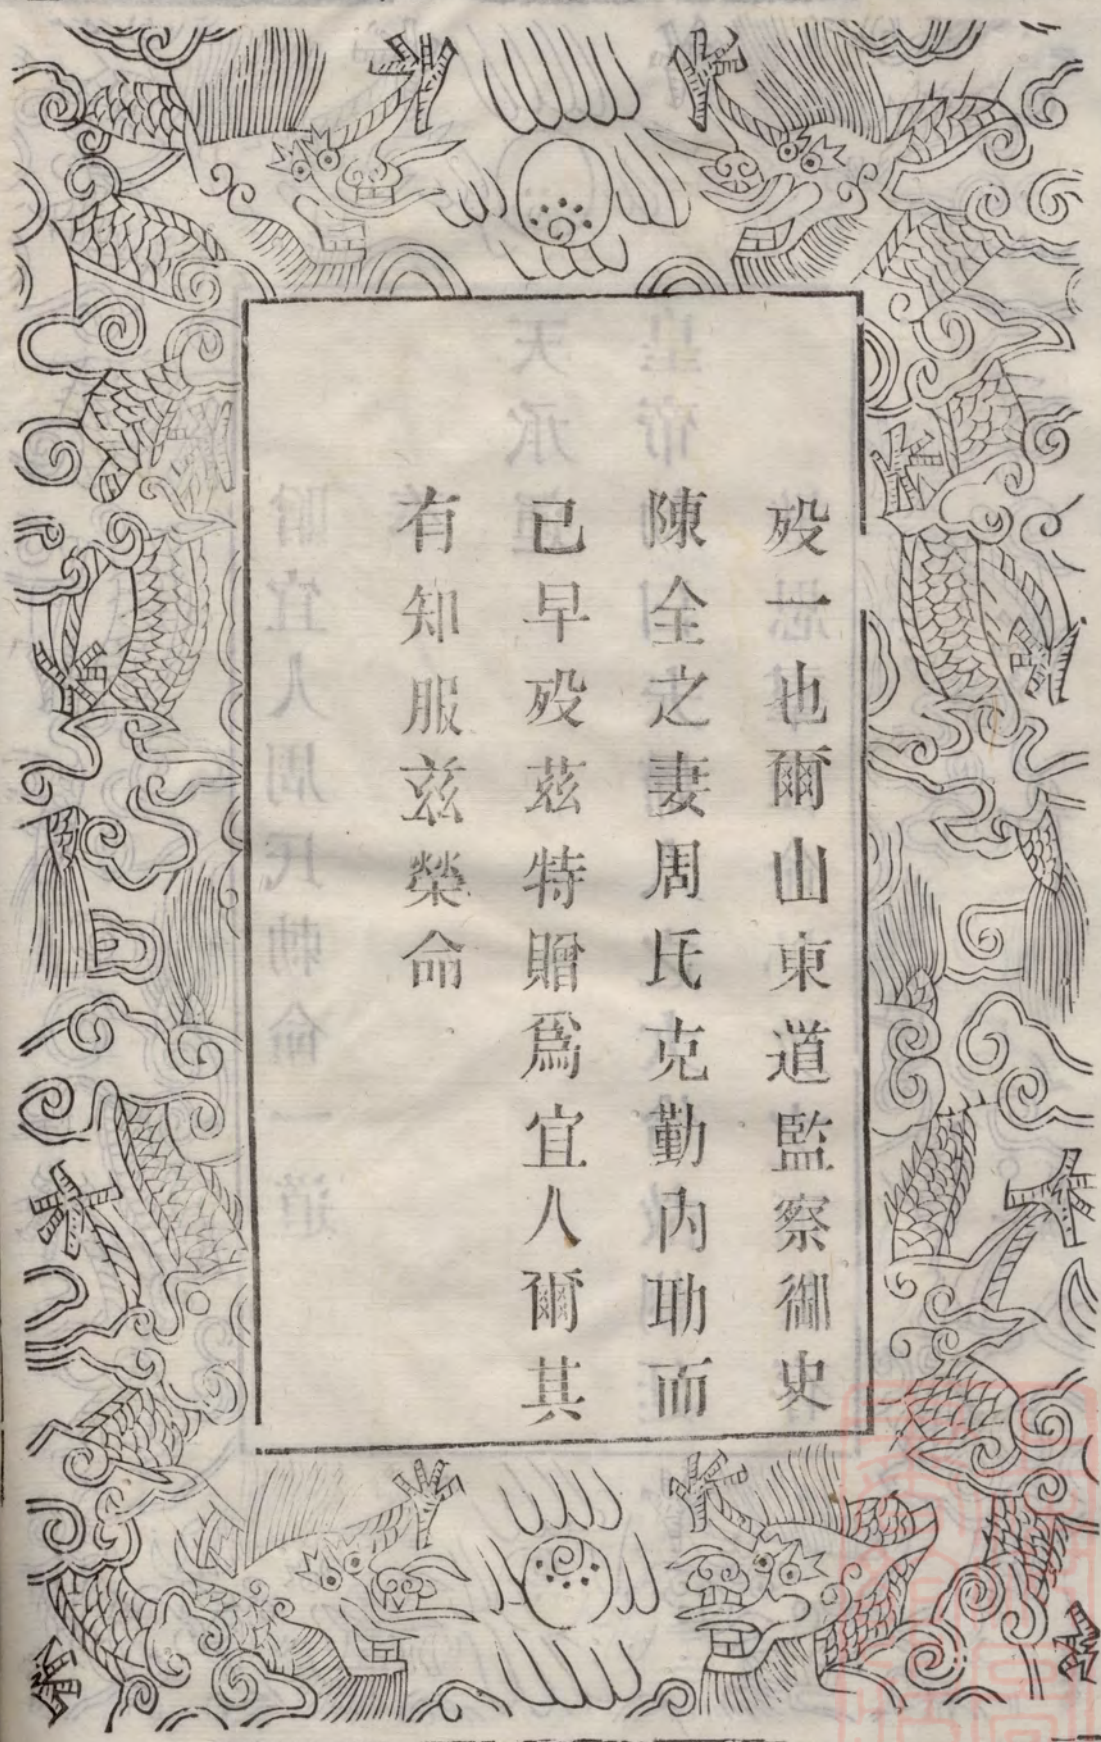 歿一也爾山東道監察御史
陳全之妻周氏克勤內助而
已早歿茲特贈爲宜人爾其
有知服茲榮命